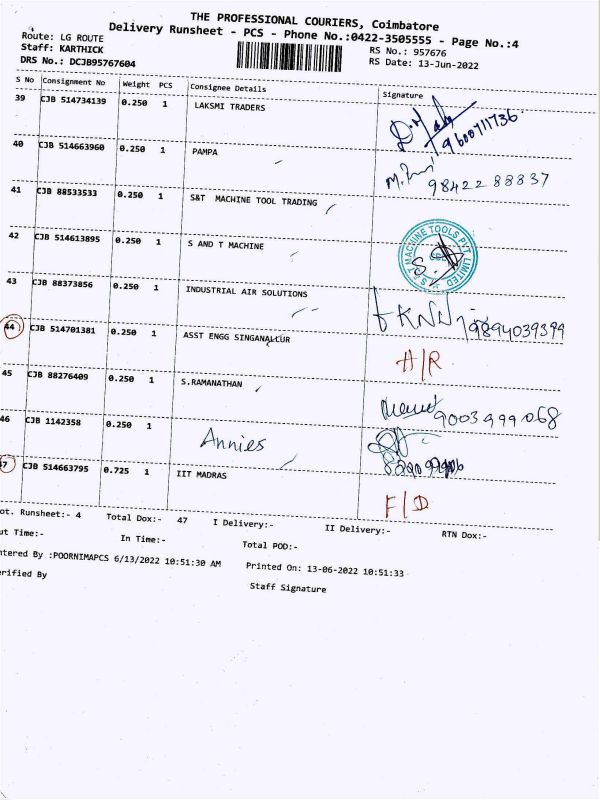 THE PROFESSIONAL COURIERS, Coimbatore
Delivery Runsheet - PCS - Phone No.:0422-3505555 - Page No.:4
Route: LG ROUTE
Staff: KARTHICK
DRS No.: DCJB95767604
RS No.: 957676
RS Date: 13-Jun-2022
S No Consignment No Weight PCS Consignee Details Signature
39 CJB 514734139 0.250 1 LAKSMI TRADERS 9600711736
40 CJB 514663960 0.250 1 PAMPA 98422 88837
41 CJB 88533533 0.250 1 S&T MACHINE TOOL TRADING
42 CJB 514613895 0.250 1 S AND T MACHINE S & T MACHINE TOOLS PVT LIMITED
43 CJB 88373856 0.250 1 INDUSTRIAL AIR SOLUTIONS 9894039399
44 CJB 514701381 0.250 1 ASST ENGG SINGANALLUR A/R
45 CJB 88276409 0.250 1 S.RAMANATHAN 9003999068
46 CJB 1142358 0.250 1 Annies
47 CJB 514663795 0.725 1 IIT MADRAS F/D
ot. Runsheet:- 4 Total Dox:- 47 I Delivery:- II Delivery:- RTN Dox:-
ut Time:- In Time:- Total POD:-
ntered By :POORNIMAPCS 6/13/2022 10:51:30 AM Printed On: 13-06-2022 10:51:33
erified By Staff Signature